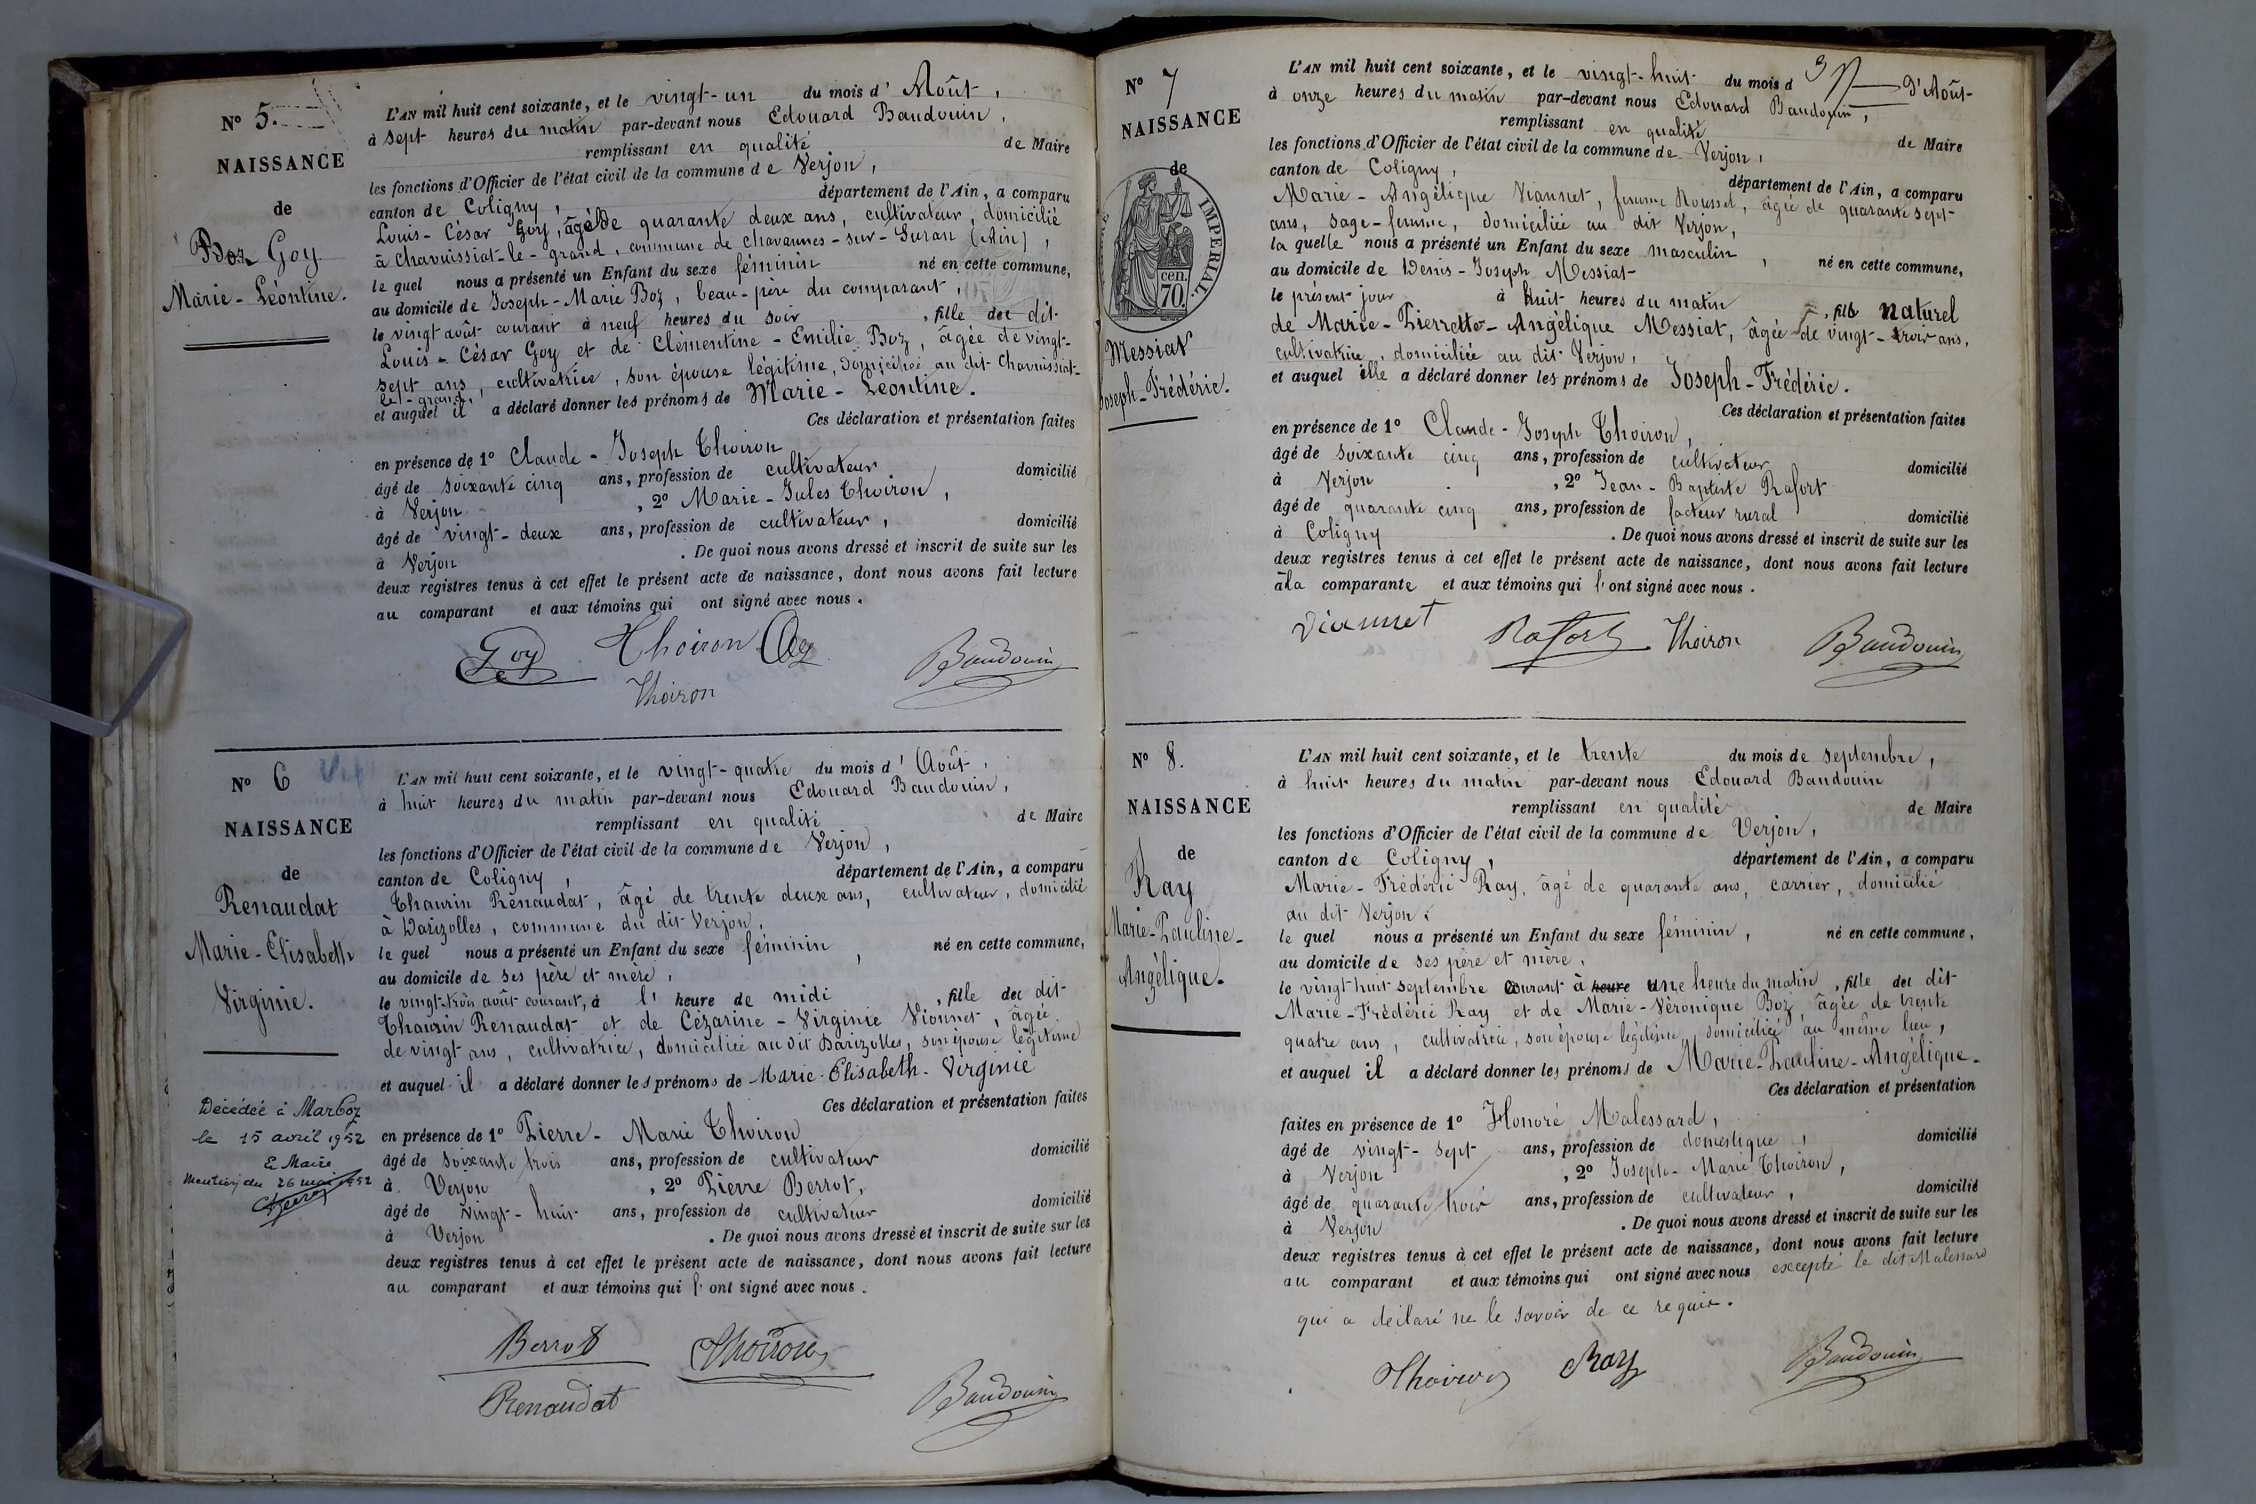 N° 5.
NAISSANCE
de
Boz Goy
Marie-Léontine.
L'AN mil huit cent soixante, et le vingt-un du mois d' Août,
à sept heures du matin par-devant nous Edouard Baudouin,
remplissant en qualité de Maire
les fonctions d'Officier de l'état civil de la commune de Verjon,
canton de Coligny, département de l'Ain, a comparu
Louis-César Goy, âgé de quarante deux ans, cultivateur, domicilié
à Chavuissiat-le-grand, commune de Chavannes-sur-Suran (Ain),
le quel nous a présenté un Enfant du sexe féminin né en cette commune,
au domicile de Joseph-Marie Boz, beau-père du comparant,
le vingt août courant à neuf heures du soir, fille du dit
Louis-César Goy et de Clémentine-Emilie Boz, âgée de vingt-
sept ans, cultivatrice, son épouse légitime, domiciliée au dit Chavuissiat-
le-grand,
et auquel il a déclaré donner les prénoms de Marie-Léontine.
Ces déclaration et présentation faites
en présence de 1° Claude-Joseph Thoiron
âgé de soixante cinq ans, profession de cultivateur domicilié
à Verjon, 2° Marie-Jules Thoiron,
âgé de vingt-deux ans, profession de cultivateur, domicilié
à Verjon. De quoi nous avons dressé et inscrit de suite sur les
deux registres tenus à cet effet le présent acte de naissance, dont nous avons fait lecture
au comparant et aux témoins qui ont signé avec nous.
Goy Thoiron Baudouin
Thoiron
N° 6
NAISSANCE
de
Renaudat
Marie-Elisabeth
Virginie.
Décédée à Marboz
le 15 avril 1952
Le Maire
Mention du 26 mai 1952
L'AN mil huit cent soixante, et le vingt-quatre du mois d' Août,
à huit heures du matin par-devant nous Edouard Baudouin,
remplissant en qualité de Maire
les fonctions d'Officier de l'état civil de la commune de Verjon,
canton de Coligny, département de l'Ain, a comparu
Thaurin Renaudat, âgé de trente deux ans, cultivateur, domicilié
à Darizolles, commune du dit Verjon,
le quel nous a présenté un Enfant du sexe féminin, né en cette commune,
au domicile de ses père et mère,
le vingt-trois août courant, à l' heure de midi, fille du dit
Thaurin Renaudat et de Cézarine-Virginie Vionnet, âgée
de vingt ans, cultivatrice, domiciliée au dit Darizolles, son épouse légitime
et auquel il a déclaré donner les prénoms de Marie-Elisabeth-Virginie
Ces déclaration et présentation faites
en présence de 1° Pierre-Marie Thoiron
âgé de soixante trois ans, profession de cultivateur domicilié
à Verjon, 2° Pierre Berrot,
âgé de vingt-huit ans, profession de cultivateur domicilié
à Verjon. De quoi nous avons dressé et inscrit de suite sur les
deux registres tenus à cet effet le présent acte de naissance, dont nous avons fait lecture
au comparant et aux témoins qui l'ont signé avec nous.
Berrot Thoiron
Renaudat Baudouin
N° 7
NAISSANCE
de
IMPERIAL
70 cen.
Messiat
Joseph-Frédéric.
L'AN mil huit cent soixante, et le vingt-huit du mois d d'Août
à onze heures du matin par-devant nous Edouard Baudouin,
remplissant en qualité de Maire
les fonctions d'Officier de l'état civil de la commune de Verjon,
canton de Coligny, département de l'Ain, a comparu
Marie-Angélique Viannet, femme Roussel, âgée de quarante sept
ans, sage-femme, domiciliée au dit Verjon,
la quelle nous a présenté un Enfant du sexe masculin, né en cette commune,
au domicile de Denis-Joseph Messiat
le présent jour à huit heures du matin, fils naturel
de Marie-Pierrette-Angélique Messiat, âgée de vingt-trois ans,
cultivatrice, domiciliée au dit Verjon,
et auquel elle a déclaré donner les prénoms de Joseph-Frédéric.
Ces déclaration et présentation faites
en présence de 1° Claude-Joseph Thoiron,
âgé de soixante cinq ans, profession de cultivateur domicilié
à Verjon, 2° Jean-Baptiste Rafort
âgé de quarante cinq ans, profession de facteur rural domicilié
à Coligny. De quoi nous avons dressé et inscrit de suite sur les
deux registres tenus à cet effet le présent acte de naissance, dont nous avons fait lecture
à la comparante et aux témoins qui l'ont signé avec nous.
Viannet Rafort Thoiron Baudouin
N° 8.
NAISSANCE
de
Ray
Marie-Pauline-
Angélique.
L'AN mil huit cent soixante, et le trente du mois de septembre,
à huit heures du matin par-devant nous Edouard Baudouin
remplissant en qualité de Maire
les fonctions d'Officier de l'état civil de la commune de Verjon,
canton de Coligny, département de l'Ain, a comparu
Marie-Frédéric Ray, âgé de quarante ans, carrier, domicilié
au dit Verjon,
le quel nous a présenté un Enfant du sexe féminin, né en cette commune,
au domicile de ses père et mère,
le vingt huit septembre courant à heure une heure du matin, fille du dit
Marie-Frédéric Ray et de Marie-Véronique Boz, âgée de trente
quatre ans, cultivatrice, son épouse légitime, domiciliée au même lieu,
et auquel il a déclaré donner les prénoms de Marie-Pauline-Angélique-
Ces déclaration et présentation
faites en présence de 1° Honoré Malessard,
âgé de vingt-sept ans, profession de domestique, domicilié
à Verjon, 2° Joseph-Marie Thoiron,
âgé de quarante trois ans, profession de cultivateur, domicilié
à Verjon. De quoi nous avons dressé et inscrit de suite sur les
deux registres tenus à cet effet le présent acte de naissance, dont nous avons fait lecture
au comparant et aux témoins qui ont signé avec nous excepté le dit Malessard
qui a déclaré ne le savoir de ce requis.
Thoiron Ray Baudouin